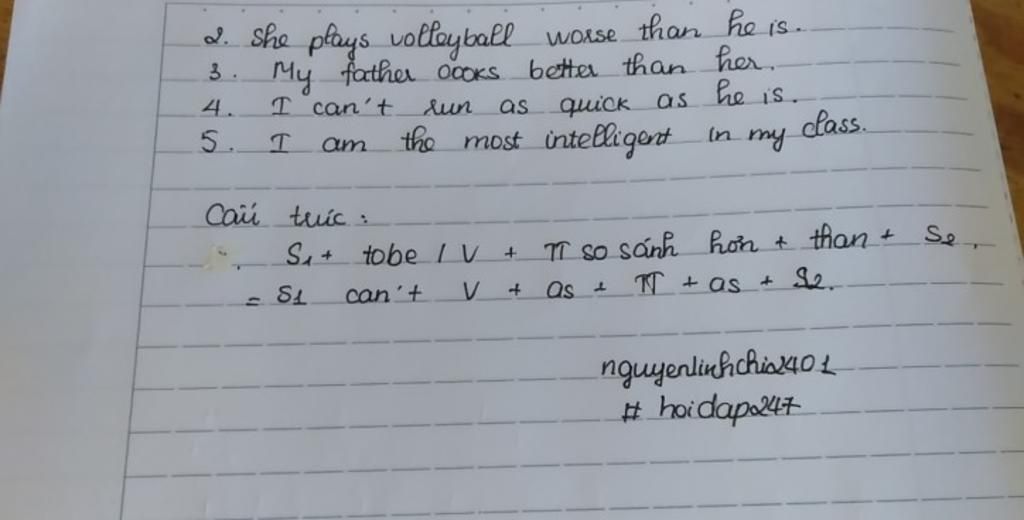 2. She plays volleyball worse than he is.
3. My father cooks better than her.
4. I can't run as quick as he is.
5. I am the most intelligent in my class.
Cấu trúc :
S1 + tobe / V + TT so sánh hơn + than + S2.
= S1 can't V + as + TT + as + S2.
nguyenlinhchi2401
# hoidap247